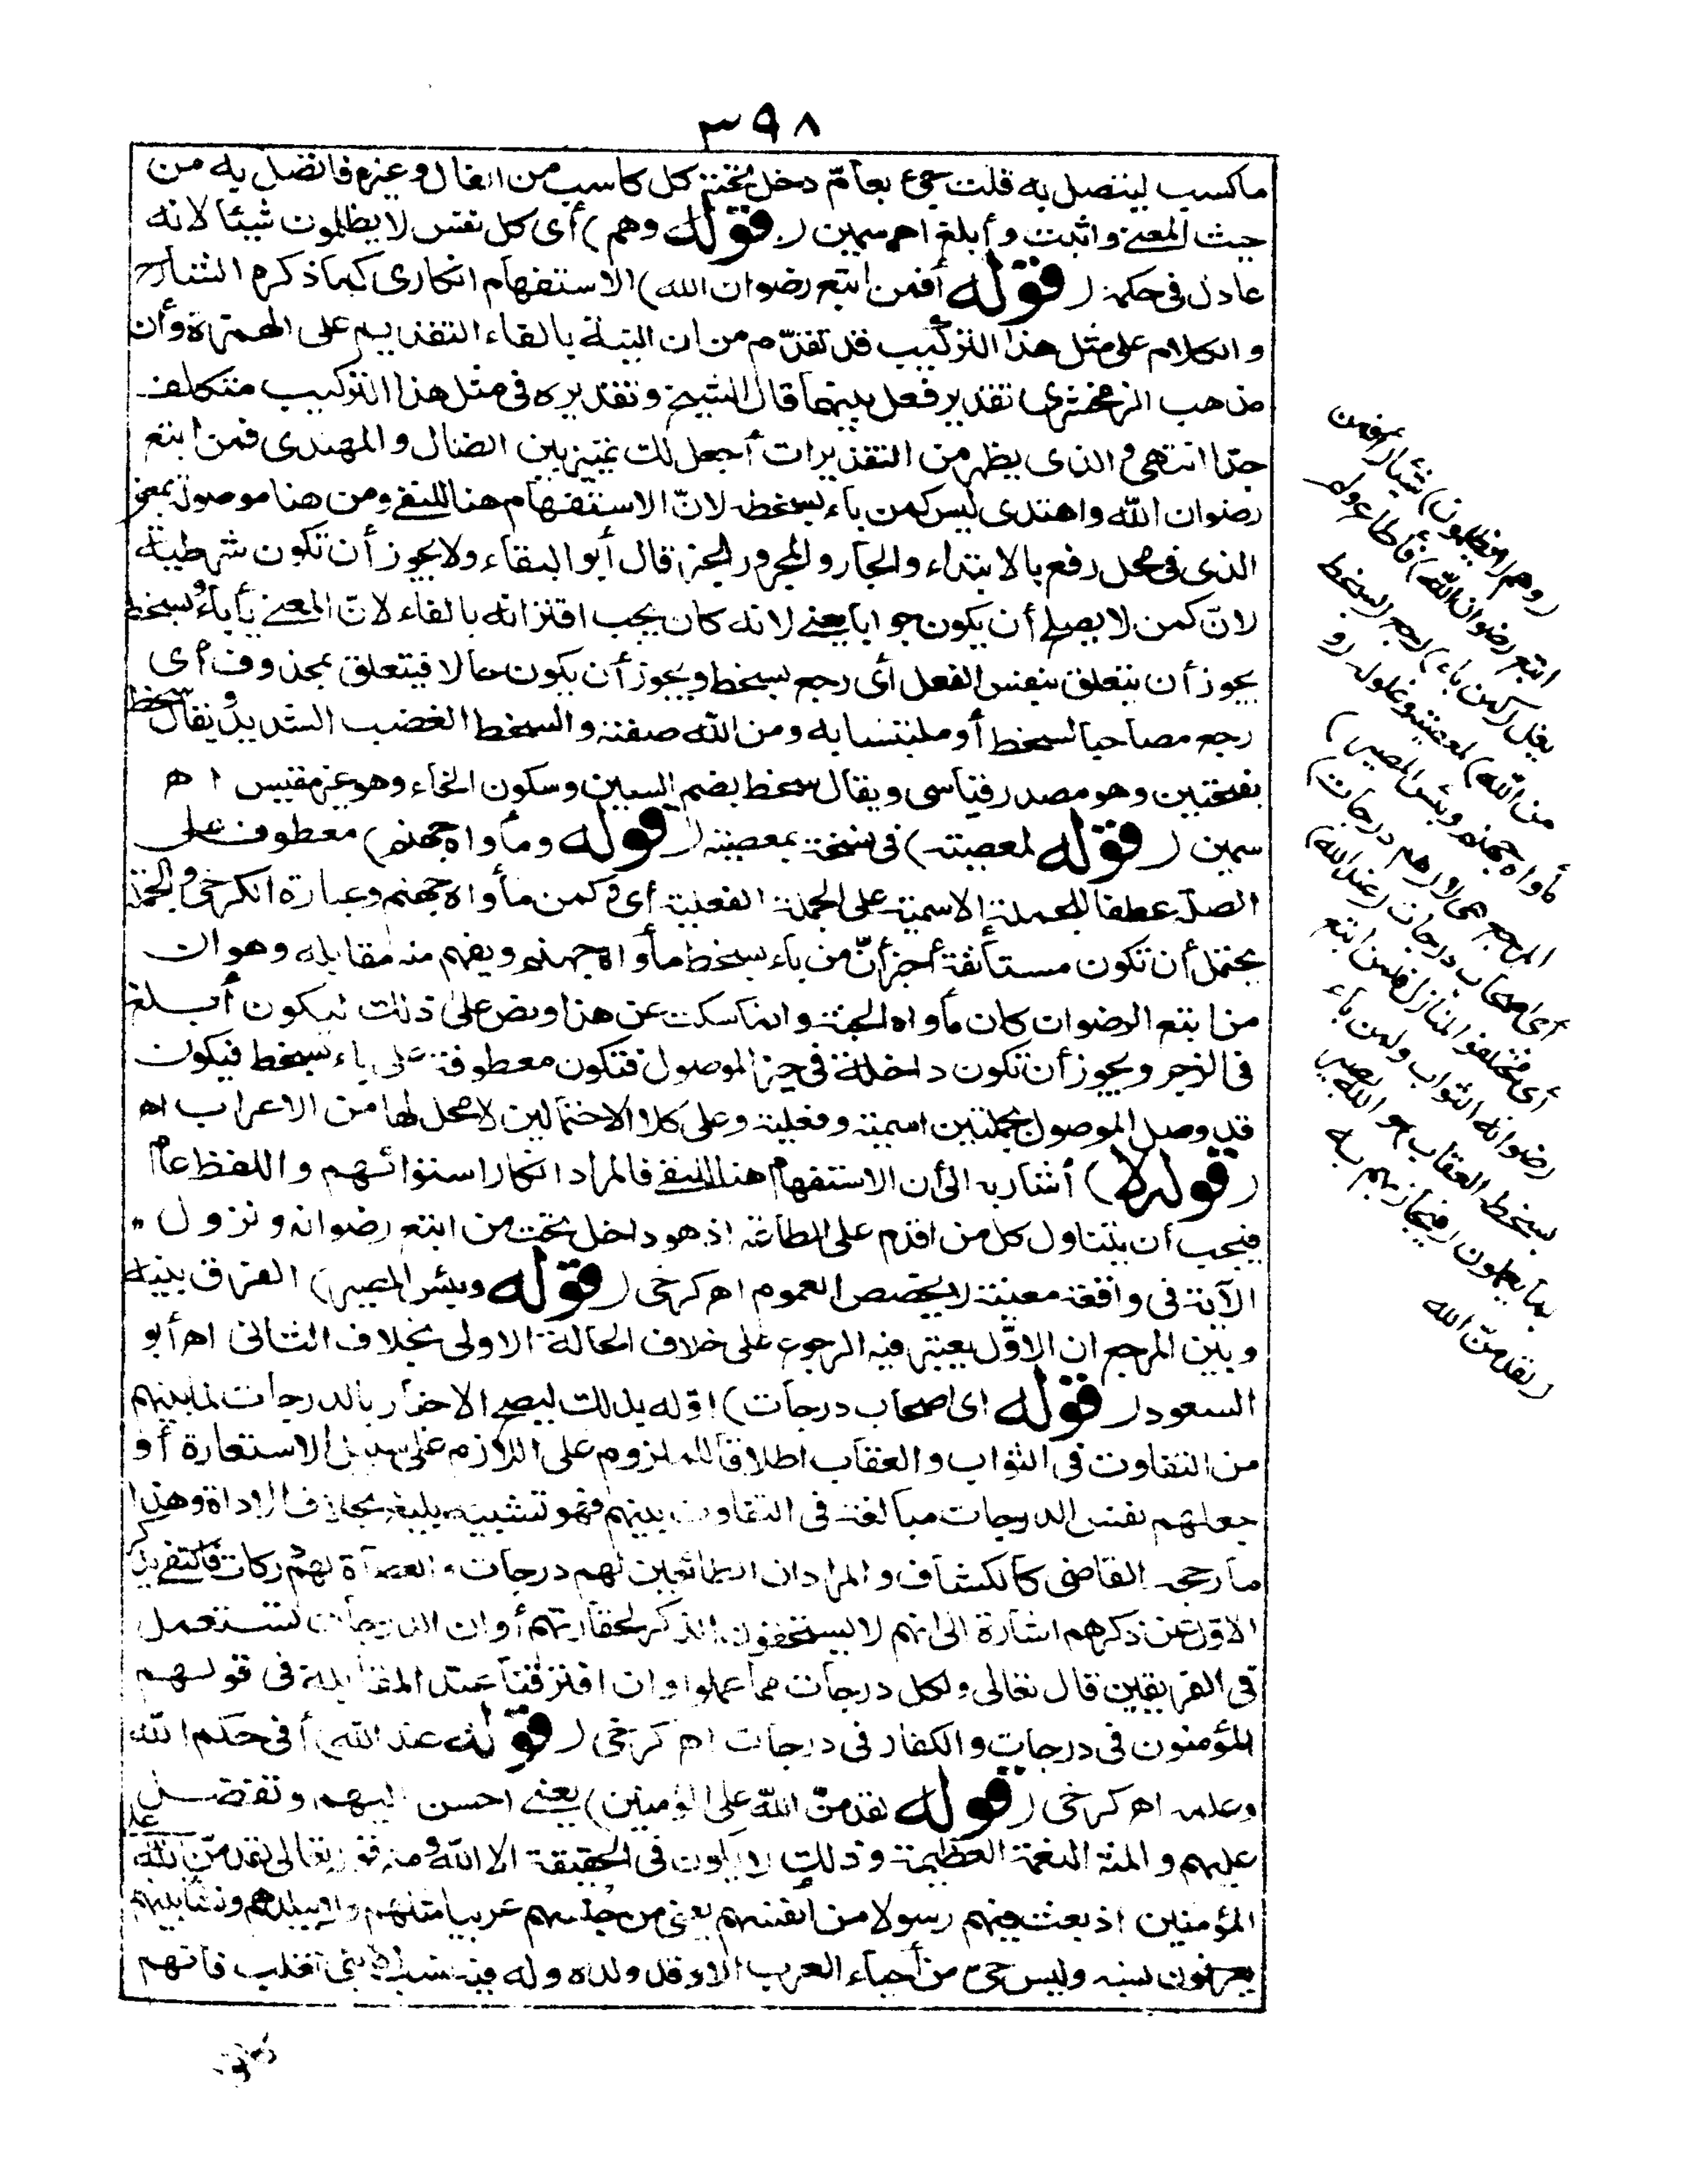 ٣٩٨
ما كسب ليتصل به قلت جيء بعامّ دخل تحته كل كاسب من الغال وغيره فاتصل به من
حيث المعنى واثبت وأبلغ اه سمين (قوله وهم) أى كل نفس لا يظلمون شيئا لانه
عادل فى حكمه (قوله أفمن اتبع رضوان الله) الاستفهام انكارى كما ذكره الشارح
والكلام على مثل هذا التركيب قد تقدّم من ان النية بالفاء التقديم على الهمزة وأن
مذهب الزمخشرى تقدير فعل بينهما قال الشيخ وتقديره فى مثل هذا التركيب متكلف
جدّا انتهى والذى يظهر من التقديرات أجعل لك تمييز بين الضال والمهتدى فمن اتبع
رضوان الله واهتدى ليس كمن باء بسخطه لانّ الاستفهام هنا للنفى ومن هنا موصولة بمعنى
الذى فى محل رفع بالابتداء والجار والمجرور الخبر قال أبو البقاء ولا يجوز أن تكون شرطية
لانّ كمن لا يصلح أن يكون جوابا يعنى لانه كان يجب اقترانه بالفاء لانّ المعنى يأباه وبسخط
يجوز أن يتعلق بنفس الفعل أى رجع بسخط ويجوز أن يكون حالا فيتعلق بمحذوف أى
رجع مصاحبا لسخط أو ملتبسا به ومن الله صفته والسخط الغضب الشديد ويقال سخط
بفتحتين وهو مصدر قياسى ويقال سخط بضم السين وسكون الخاء وهو غير مقيس اه
سمين (قوله لمعصيته) فى نسخة بمعصيته (قوله ومأواه جهنم) معطوف على
الصلة عطفا للجملة الاسمية على الجملة الفعلية أى وكمن مأواه جهنم وعبارة الكرخى والجملة
يحتمل أن تكون مستأنفة أخبر أنّ من باء بسخط مأواه جهنم ويفهم منه مقابله وهو ان
من اتبع الرضوان كان مأواه الجنة وانما سكت عن هذا ونص على ذلك ليكون أبلغ
فى الزجر ويجوز أن تكون داخلة فى حيز الموصول فتكون معطوفة على باء بسخط فيكون
قد وصل الموصول بجملتين اسمية وفعلية وعلى كلا الاحتمالين لا محل لها من الاعراب اه
(قوله لا) أشار به الى أن الاستفهام هنا للنفى فالمراد انكار استوائهم واللفظ عام
فيجب أن يتناول كل من اقدم على الطاعة اذ هو داخل تحت من اتبع رضوانه ونزول
الآية فى واقعة معينة لا يخصص العموم اه كرخى (قوله وبئس المصير) الفرق بينه
وبين المرجع ان الاوّل يعتبر فيه الرجوع على خلاف الحالة الاولى بخلاف الثانى اه أبو
السعود (قوله اى اصحاب درجات) اوّله بذلك ليصح الاخبار بالدرجات لما بينهم
من التفاوت فى الثواب والعقاب اطلاقا للملزوم على اللازم على سبيل الاستعارة أو
جعلهم نفس الدرجات مبالغة فى التفاوت بينهم فهو تشبيه بليغ بحذف الاداة وهذا
ما رجحه القاضى كالكشاف والمراد ان الطائعين لهم درجات والعصاة لهم دركات فاكتفى بذكر
الاوّل عن ذكرهم اشارة الى انهم لا يستحقون الذكر لحقارتهم أو ان الدرجات تستعمل
فى الفريقين قال تعالى ولكل درجات مما عملوا وان افترقتا عند المقابلة فى قولهم
المؤمنون فى درجات والكفار فى دركات اه كرخى (قوله عند الله) أى فى حكم الله
وعلمه اه كرخى (قوله لقد منّ الله على المؤمنين) يعنى احسن اليهم وتفضل
عليهم والمنة النعمة العظيمة وذلك لا يكون فى الحقيقة الا الله ومنه قوله تعالى لقد منّ الله على
المؤمنين اذ بعث فيهم رسولا من انفسهم يعنى من جنسهم عربيا مثلهم ولد ببلدهم ونشأ بينهم
يعرفون نسبه وليس حىّ من أحياء العرب الا وقد ولده وله فيه نسب الا بنى تغلب فانهم
(وهم لا يظلمون) شيئا (أفمن
اتبع رضوان الله) فأطاع ولم
يغل (كمن باء) رجع (بسخط
من الله) لمعصيته وغلوله (و
مأواه جهنم وبئس المصير)
المرجع هى لا (هم درجات)
أى اصحاب درجات (عند الله)
أى مختلفو المنازل فلمن اتبع
رضوانه الثواب ولمن باء
بسخط العقاب (والله بصير
بما يعملون) فيجازيهم به
(لقد منّ الله